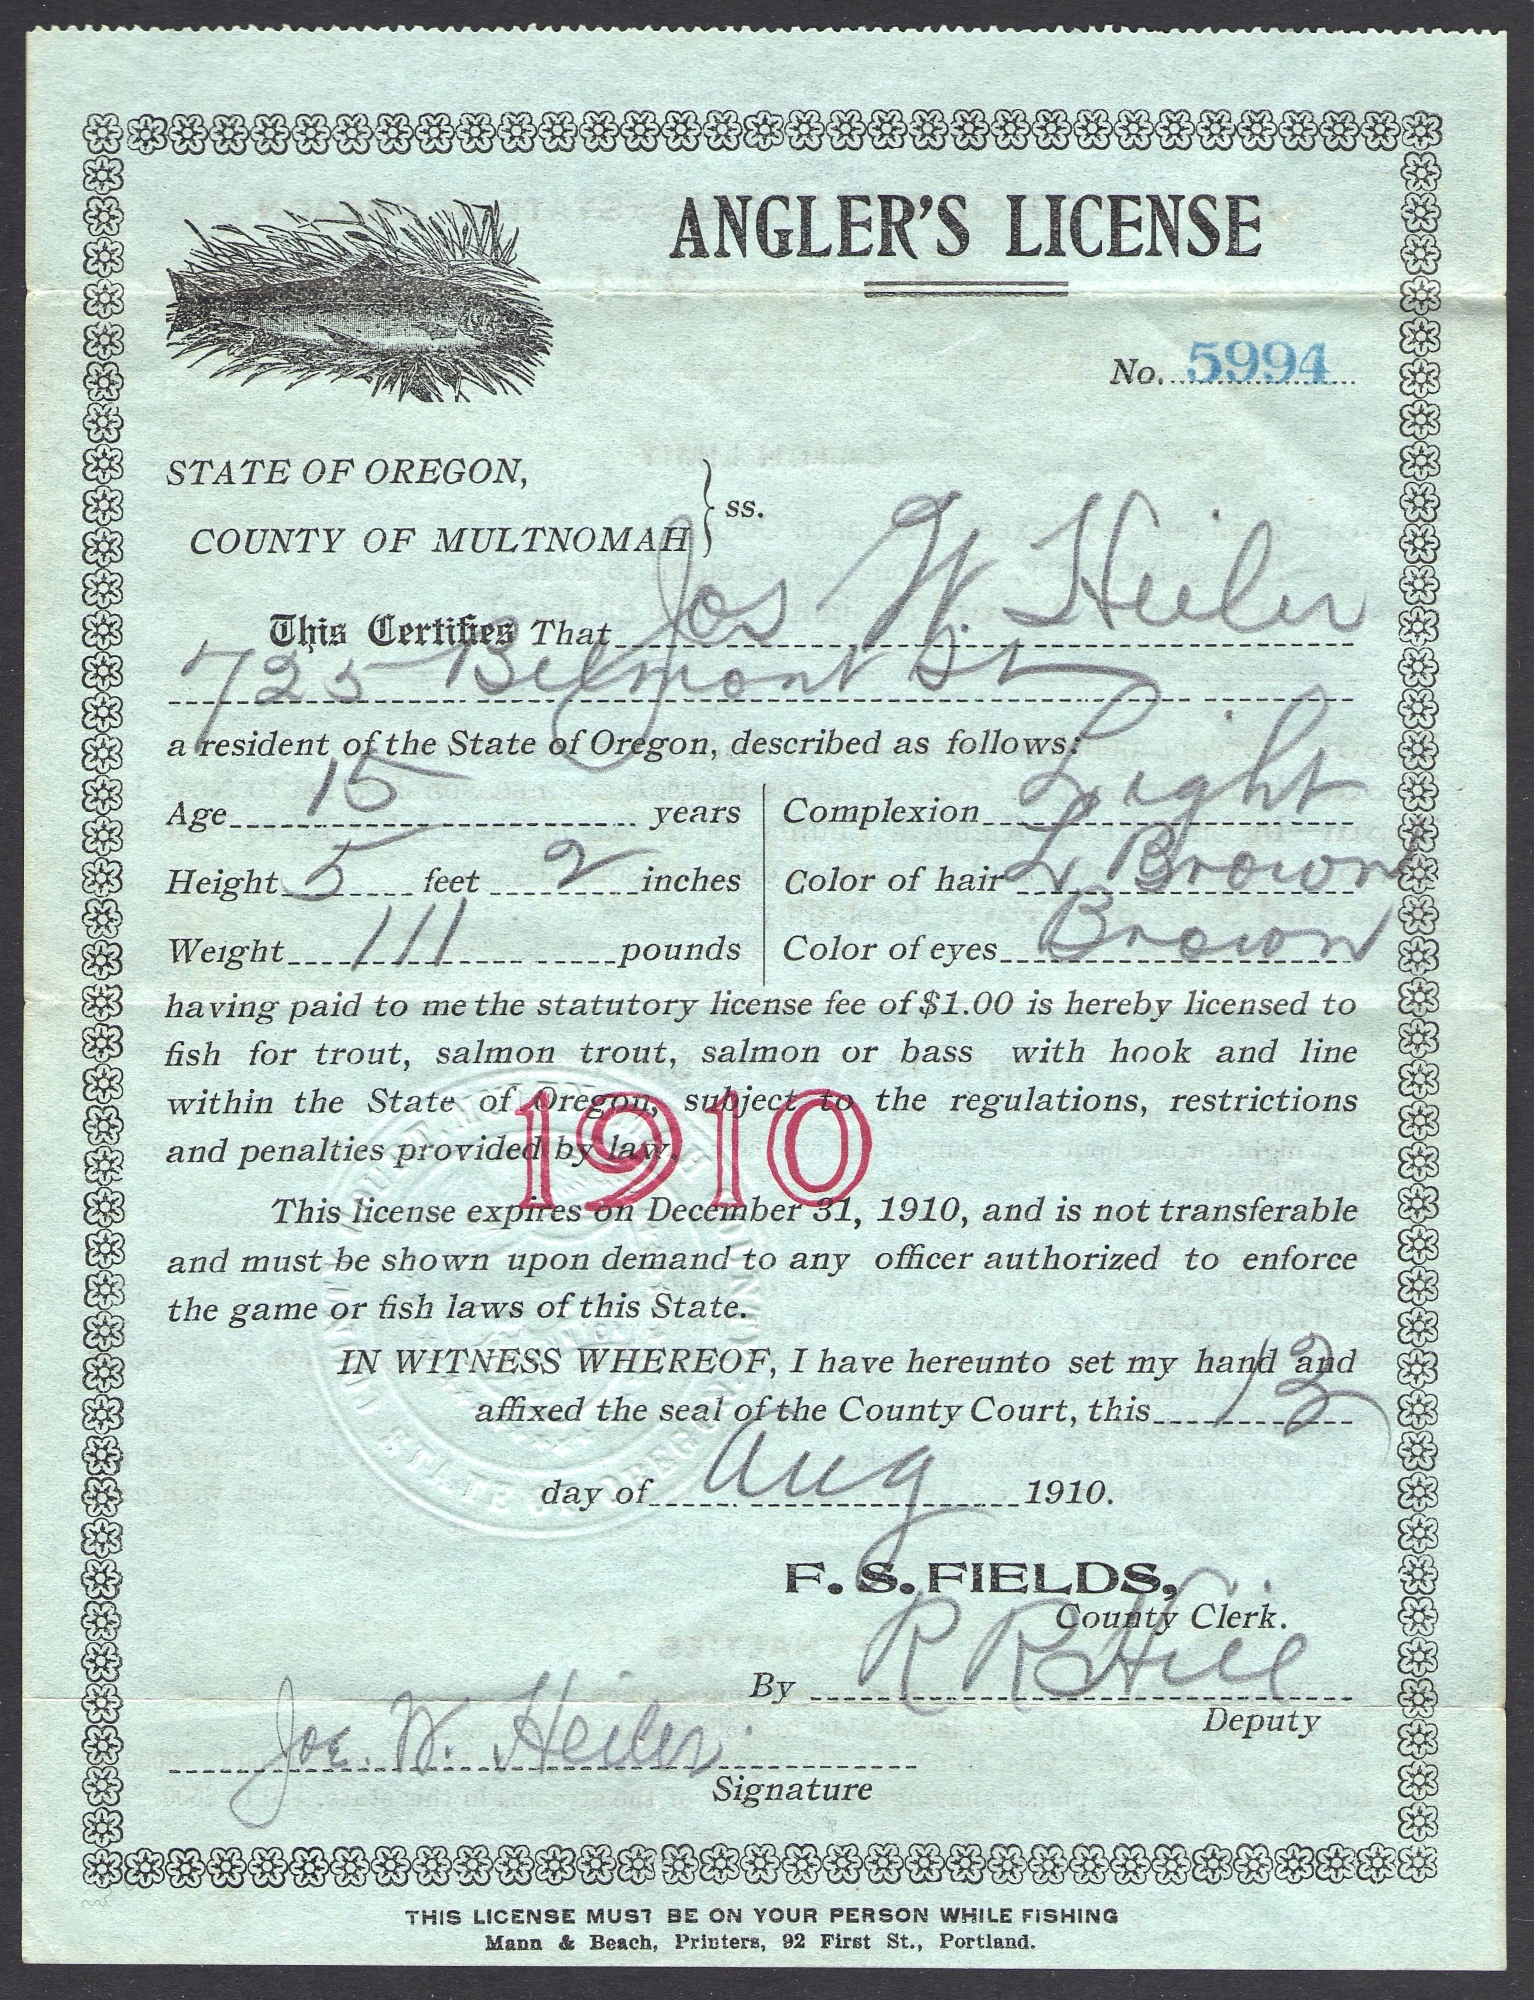 ANGLER'S LICENSE
No. 5994
STATE OF OREGON,
COUNTY OF MULTNOMAH } ss.
This Certifies That Jos W. Heiler
725 Belmont St
a resident of the State of Oregon, described as follows:
Age 15 years Complexion Light
Height 5 feet 2 inches Color of hair L Brown
Weight 111 pounds Color of eyes Brown
having paid to me the statutory license fee of $1.00 is hereby licensed to
fish for trout, salmon trout, salmon or bass with hook and line
within the State of Oregon, subject to the regulations, restrictions
and penalties provided by law.
1910
This license expires on December 31, 1910, and is not transferable
and must be shown upon demand to any officer authorized to enforce
the game or fish laws of this State.
IN WITNESS WHEREOF, I have hereunto set my hand and
affixed the seal of the County Court, this 13
day of Aug 1910.
F. S. FIELDS,
County Clerk.
By R R Hill
Deputy
Joe. W. Heiler.
Signature
THIS LICENSE MUST BE ON YOUR PERSON WHILE FISHING
Mann & Beach, Printers, 92 First St., Portland.